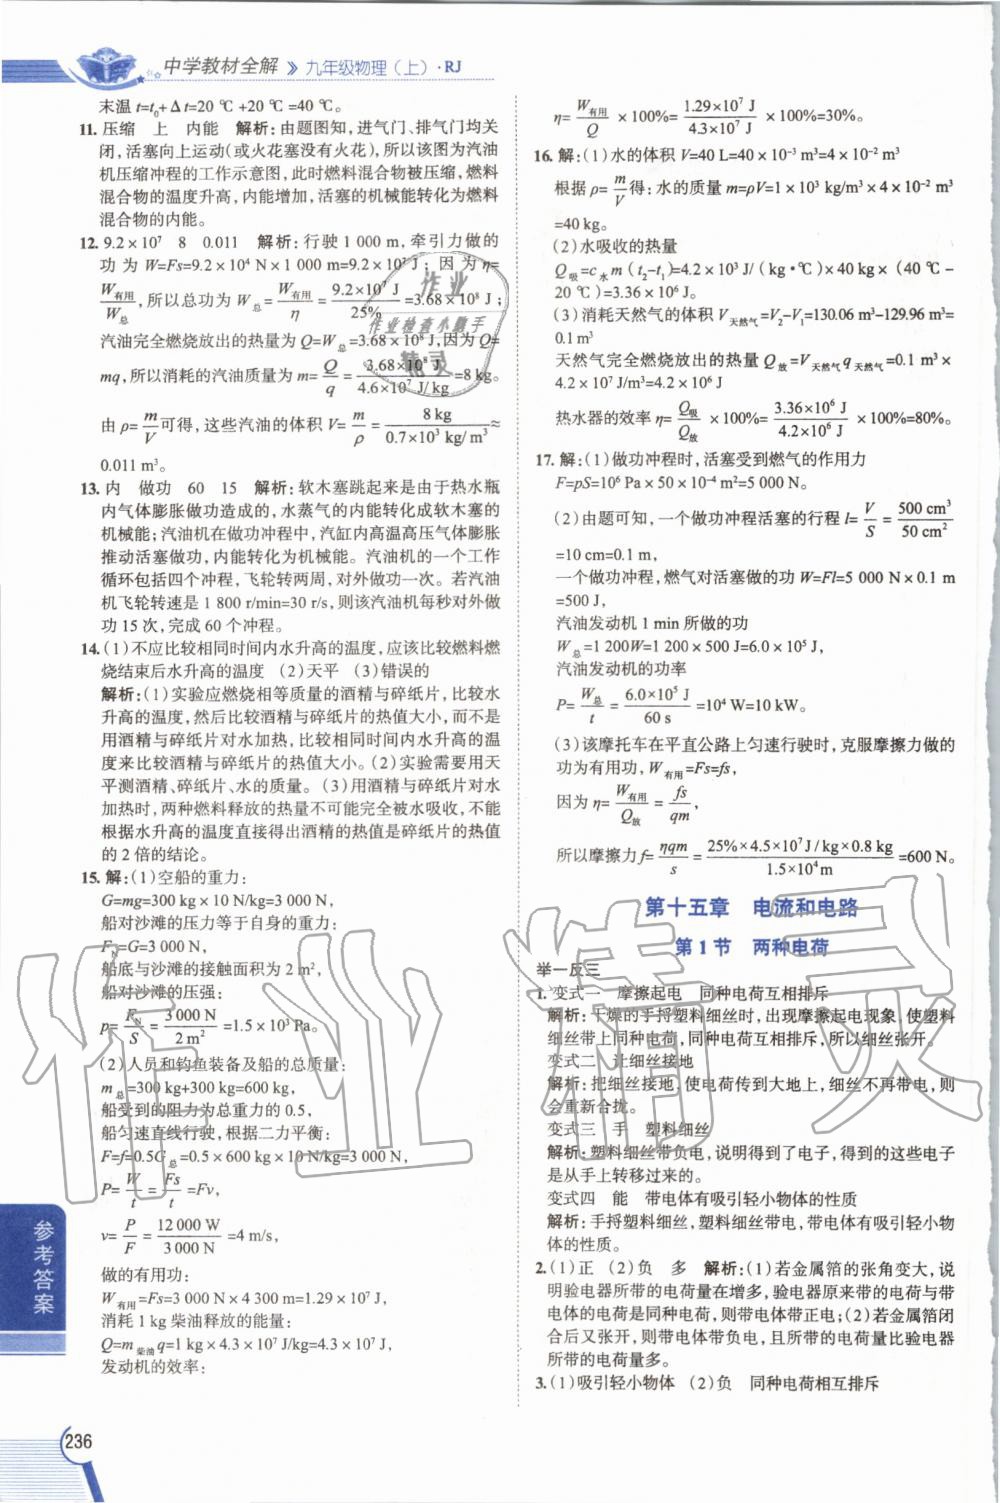 中学教材全解 》九年级物理(上)·RJ
末温 t=t₀+Δt=20 ℃ +20 ℃ =40 ℃。
11. 压缩 上 内能 解析:由题图知,进气门、排气门均关
闭,活塞向上运动(或火花塞没有火花),所以该图为汽油
机压缩冲程的工作示意图,此时燃料混合物被压缩,燃料
混合物的温度升高,内能增加,活塞的机械能转化为燃料
混合物的内能。
12. 9.2×10⁷ 8 0.011 解析:行驶 1 000 m,牵引力做的
功为 W=Fs=9.2×10⁴ N×1 000 m=9.2×10⁷ J;因为 η=
W有用/W总,所以总功为 W总=W有用/η=9.2×10⁷ J/25%=3.68×10⁸ J;
汽油完全燃烧放出的热量为 Q=W总=3.68×10⁸ J,因为 Q=
mq,所以消耗的汽油质量为 m=Q/q=3.68×10⁸ J/4.6×10⁷ J/kg=8 kg。
由 ρ=m/V可得,这些汽油的体积 V=m/ρ=8 kg/0.7×10³ kg/m³≈
0.011 m³。
13. 内 做功 60 15 解析:软木塞跳起来是由于热水瓶
内气体膨胀做功造成的,水蒸气的内能转化成软木塞的
机械能;汽油机在做功冲程中,汽缸内高温高压气体膨胀
推动活塞做功,内能转化为机械能。汽油机的一个工作
循环包括四个冲程,飞轮转两周,对外做功一次。若汽油
机飞轮转速是 1 800 r/min=30 r/s,则该汽油机每秒对外做
功 15 次,完成 60 个冲程。
14. (1)不应比较相同时间内水升高的温度,应该比较燃料燃
烧结束后水升高的温度 (2)天平 (3)错误的
解析:(1)实验应燃烧相等质量的酒精与碎纸片,比较水
升高的温度,然后比较酒精与碎纸片的热值大小,而不是
用酒精与碎纸片对水加热,比较相同时间内水升高的温
度来比较酒精与碎纸片的热值大小。(2)实验需要用天
平测酒精、碎纸片、水的质量。(3)用酒精与碎纸片对水
加热时,两种燃料释放的热量不可能完全被水吸收,不能
根据水升高的温度直接得出酒精的热值是碎纸片的热值
的 2 倍的结论。
15. 解:(1)空船的重力:
G=mg=300 kg×10 N/kg=3 000 N,
船对沙滩的压力等于自身的重力:
F_N=G=3 000 N,
船底与沙滩的接触面积为 2 m²,
船对沙滩的压强:
p=F_N/S=3 000 N/2 m²=1.5×10³ Pa。
(2)人员和钓鱼装备及船的总质量:
m总=300 kg+300 kg=600 kg,
船受到的阻力为总重力的 0.5,
船匀速直线行驶,根据二力平衡:
F=f=0.5G总=0.5×600 kg×10 N/kg=3 000 N,
P=W/t=Fs/t=Fv,
v=P/F=12 000 W/3 000 N=4 m/s,
做的有用功:
W有用=Fs=3 000 N×4 300 m=1.29×10⁷ J,
消耗 1 kg 柴油释放的能量:
Q=m柴油q=1 kg×4.3×10⁷ J/kg=4.3×10⁷ J,
发动机的效率:
η=W有用/Q×100%=1.29×10⁷ J/4.3×10⁷ J×100%=30%。
16. 解:(1)水的体积 V=40 L=40×10⁻³ m³=4×10⁻² m³
根据 ρ=m/V得:水的质量 m=ρV=1×10³ kg/m³×4×10⁻² m³
=40 kg。
(2)水吸收的热量
Q吸=c水m(t₂-t₁)=4.2×10³ J/(kg·℃)×40 kg×(40 ℃-
20 ℃)=3.36×10⁶ J。
(3)消耗天然气的体积 V天然气=V₂-V₁=130.06 m³-129.96 m³=
0.1 m³
天然气完全燃烧放出的热量 Q放=V天然气q天然气=0.1 m³×
4.2×10⁷ J/m³=4.2×10⁶ J
热水器的效率 η=Q吸/Q放×100%=3.36×10⁶ J/4.2×10⁶ J×100%=80%。
17. 解:(1)做功冲程时,活塞受到燃气的作用力
F=pS=10⁶ Pa×50×10⁻⁴ m²=5 000 N。
(2)由题可知,一个做功冲程活塞的行程 l=V/S=500 cm³/50 cm²
=10 cm=0.1 m,
一个做功冲程,燃气对活塞做的功 W=Fl=5 000 N×0.1 m
=500 J,
汽油发动机 1 min 所做的功
W总=1 200W=1 200×500 J=6.0×10⁵ J,
汽油发动机的功率
P=W总/t=6.0×10⁵ J/60 s=10⁴ W=10 kW。
(3)该摩托车在平直公路上匀速行驶时,克服摩擦力做的
功为有用功,W有用=Fs=fs,
因为 η=W有用/Q放=fs/qm,
所以摩擦力 f=ηqm/s=25%×4.5×10⁷ J/kg×0.8 kg/1.5×10⁴ m=600 N。
第十五章 电流和电路
第 1 节 两种电荷
举一反三
1. 变式一 摩擦起电 同种电荷互相排斥
解析:干燥的手捋塑料细丝时,出现摩擦起电现象,使塑料
细丝带上同种电荷,同种电荷互相排斥,所以细丝张开。
变式二 让细丝接地
解析:把细丝接地,使电荷传到大地上,细丝不再带电,则
会重新合拢。
变式三 手 塑料细丝
解析:塑料细丝带负电,说明得到了电子,得到的这些电子
是从手上转移过来的。
变式四 能 带电体有吸引轻小物体的性质
解析:手捋塑料细丝,塑料细丝带电,带电体有吸引轻小物
体的性质。
2. (1)正 (2)负 多 解析:(1)若金属箔的张角变大,说
明验电器所带的电荷量在增多,验电器原来带的电荷与带
电体的电荷是同种电荷,则带电体带正电;(2)若金属箔闭
合后又张开,则带电体带负电,且所带的电荷量比验电器
所带的电荷量多。
3. (1)吸引轻小物体 (2)负 同种电荷相互排斥
参考答案
236
作业
作业检查小助手
精灵
作业精灵